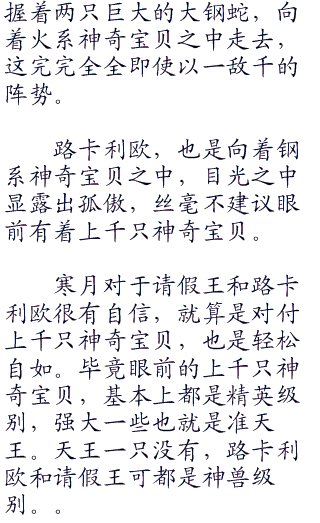 握着两只巨大的大钢蛇，向
着火系神奇宝贝之中走去，
这完完全全即使以一敌千的
阵势。
路卡利欧，也是向着钢
系神奇宝贝之中，目光之中
显露出孤傲，丝毫不建议眼
前有着上千只神奇宝贝。
寒月对于请假王和路卡
利欧很有自信，就算是对付
上千只神奇宝贝，也是轻松
自如。毕竟眼前的上千只神
奇宝贝，基本上都是精英级
别，强大一些也就是准天
王。天王一只没有，路卡利
欧和请假王可都是神兽级
别。。